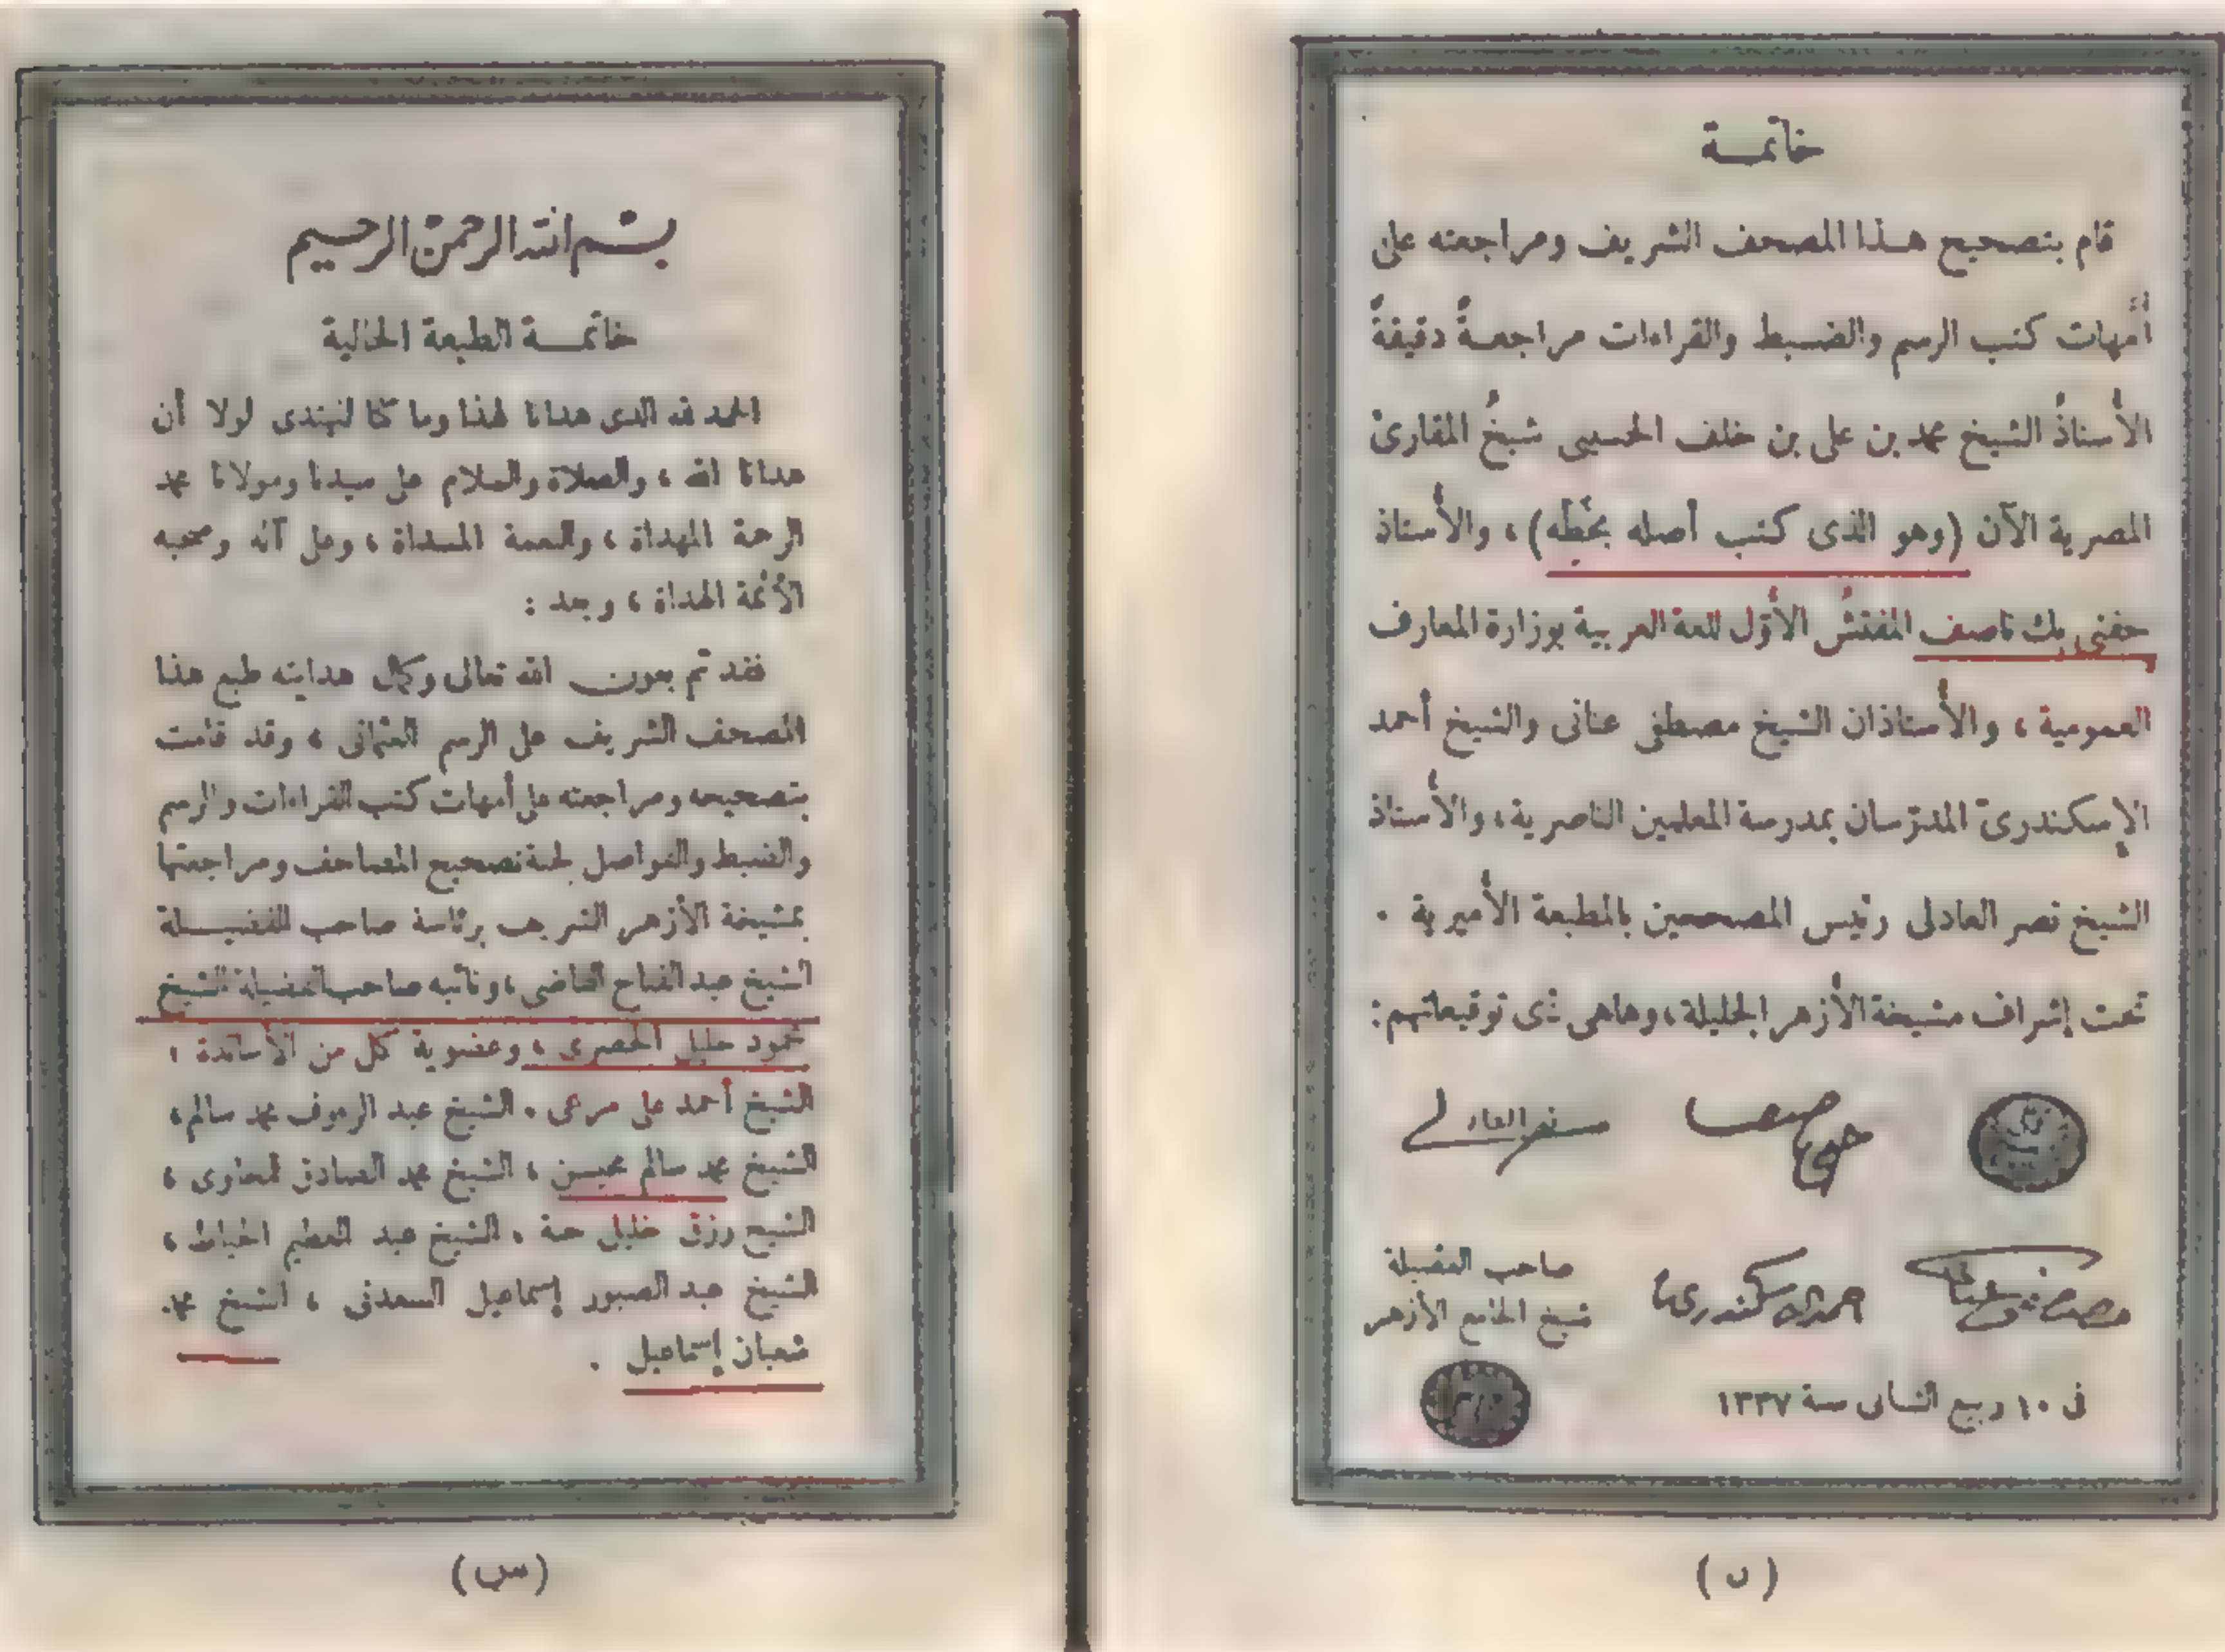 خاتمة
قام بتصحيح هذا المصحف الشريف ومراجعته على
أمهات كتب الرسم والضبط والقراءات مراجعةً دقيقةً
الأستاذُ الشيخ محمد بن على بن خلف الحسينى شيخُ المقارئ
المصرية الآن (وهو الذى كتب أصله بخَطِّه)، والأستاذ
حفنى بك ناصف المفتشُ الأوّل للغة العربية بوزارة المعارف
العمومية، والأستاذان الشيخ مصطفى عنانى والشيخ أحمد
الإسكندرىّ المدرّسان بمدرسة المعلمين الناصرية، والأستاذ
الشيخ نصر العادلى رئيس المصححين بالمطبعة الأميرية .
تحت إشراف مشيخة الأزهر الجليلة، وهاهى ذى توقيعاتهم:
حفنى ناصف نصر العادلى
مصطفى عنانى احمد الاسكندرى
صاحب الفضيلة
شيخ الجامع الأزهر
فى ١٠ ربيع الثانى سنة ١٣٣٧
(ن)
بسم الله الرحمن الرحيم
خاتمة الطبعة الحالية
الحمد لله الذى هدانا لهذا وما كنا لنهتدى لولا أن
هدانا الله ، والصلاة والسلام على سيدنا ومولانا محمد
الرحمة المهداة ، والنعمة المسداة ، وعلى آله وصحبه
الأئمة الهداة ، وبعد :
فقد تم بعون الله تعالى وكمال هدايته طبع هذا
المصحف الشريف على الرسم العثمانى ، وقد قامت
بتصحيحه ومراجعته على أمهات كتب القراءات والرسم
والضبط والفواصل لجنة تصحيح المصاحف ومراجعتها
بمشيخة الأزهر الشريف برئاسة صاحب الفضيلة
الشيخ عبد الفتاح القاضى ، ونائبه صاحب الفضيلة الشيخ
محمود خليل الحصرى ، وعضوية كل من الأساتذة :
الشيخ أحمد على مرعى ، الشيخ عبد الرءوف محمد سالم،
الشيخ محمد سالم محيسن ، الشيخ محمد الصادق قمحاوى ،
الشيخ رزق خليل حبة ، الشيخ عبد العظيم الخياط ،
الشيخ عبد الصبور إسماعيل السعدنى ، الشيخ محمد
شعبان إسماعيل .
(س)